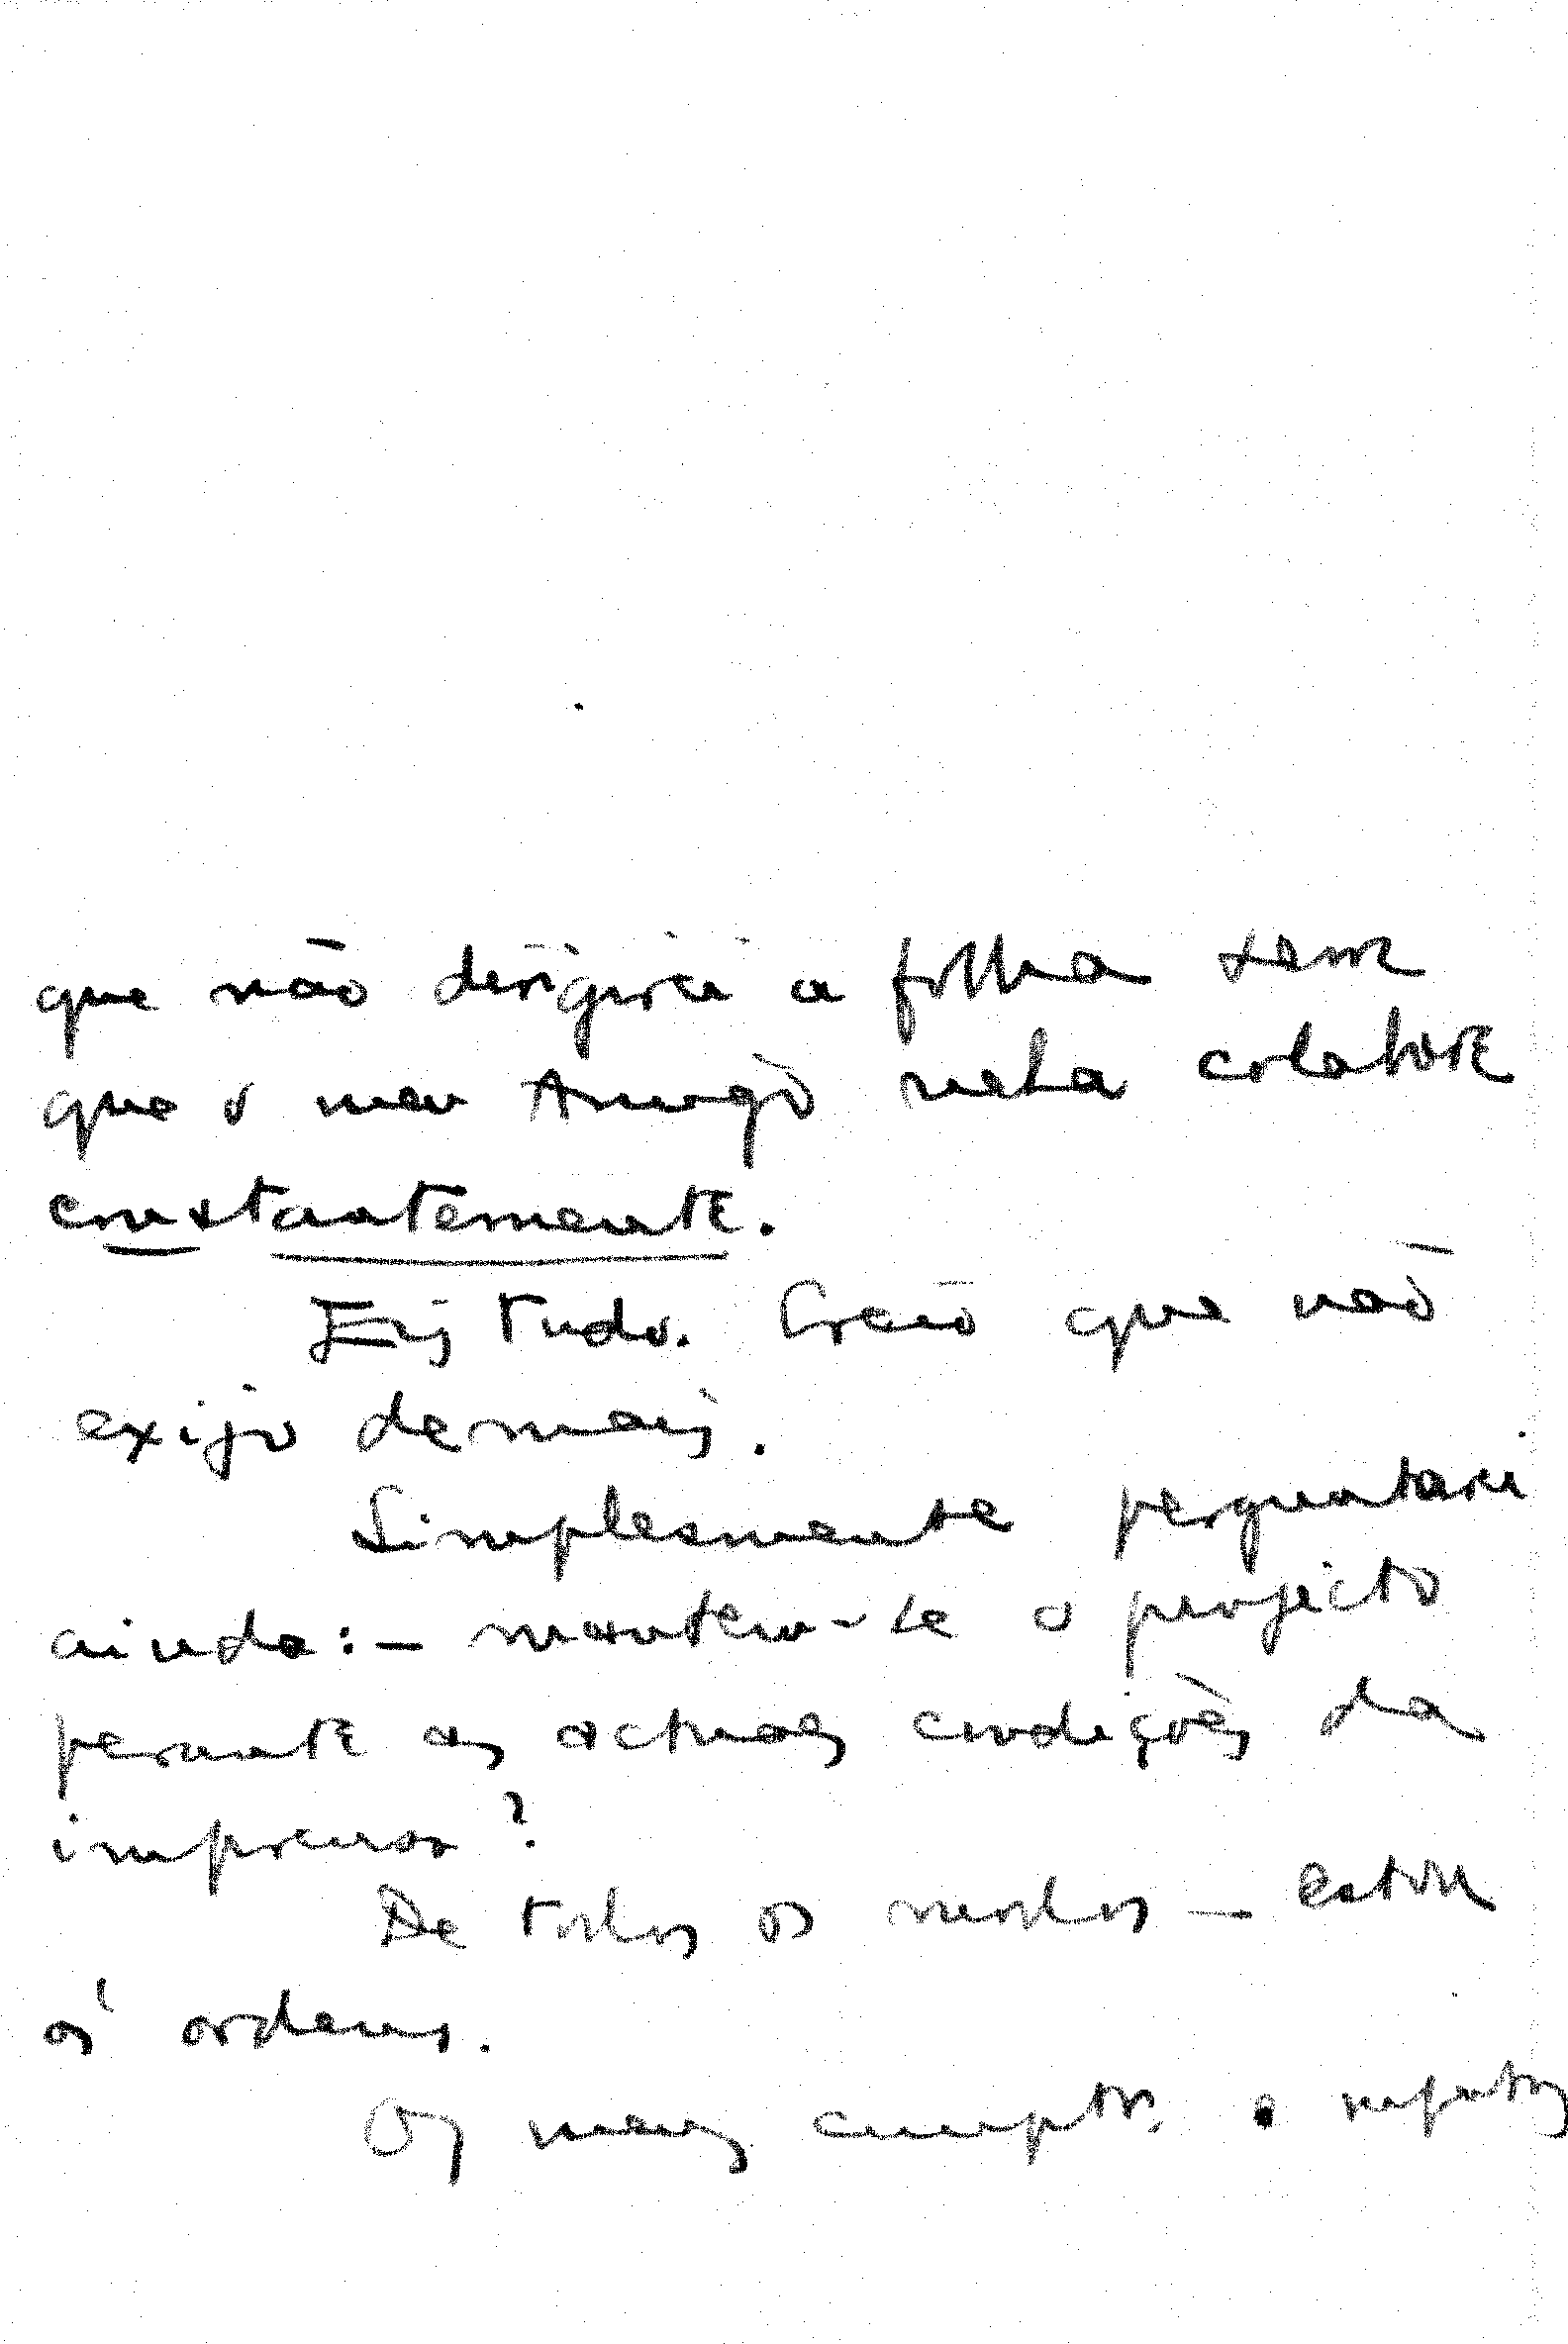 que não dirigirei a folha sem
que o meu Amigo nela colabore
constantemente.
Eis tudo. Creio que não
exijo demais.
Simplesmente perguntarei
ainda: – mantem-se o projecto
perante as actuaes condições da
imprensa?
De todos os modos – estou
ás ordens.
Os meus cumptos. e